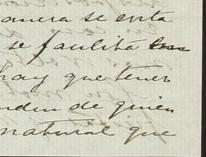 anera se evita
se faulita
hay que tener
nden de quien
natural que